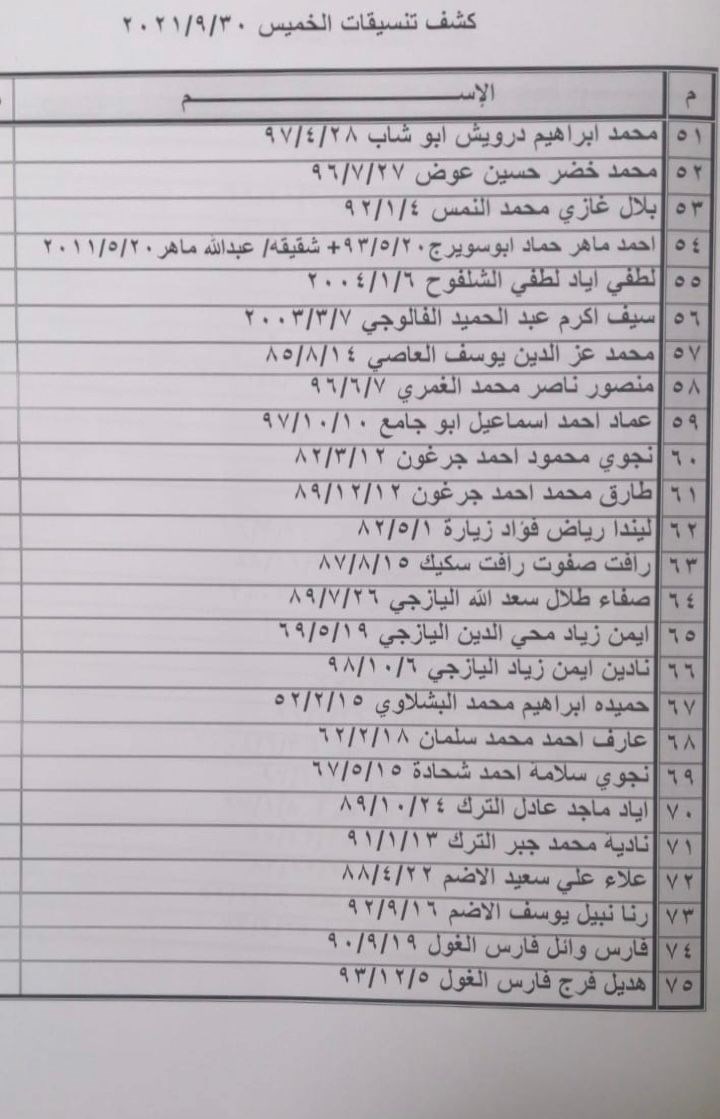 كشف تنسيقات الخميس ٢٠٢١/٩/٣٠
م الإســـــــــــــــــم
٥١ محمد ابراهيم درويش ابو شاب ٩٧/٤/٢٨
٥٢ محمد خضر حسين عوض ٩٦/٧/٢٧
٥٣ بلال غازي محمد النمس ٩٢/١/٤
٥٤ احمد ماهر حماد ابوسويرج٩٣/٥/٢٠+ شقيقه/ عبدالله ماهر٢٠١١/٥/٢٠
٥٥ لطفي اياد لطفي الشلفوح ٢٠٠٤/١/٦
٥٦ سيف اكرم عبد الحميد الفالوجي ٢٠٠٣/٣/٧
٥٧ محمد عز الدين يوسف العاصي ٨٥/٨/١٤
٥٨ منصور ناصر محمد الغمري ٩٦/٦/٧
٥٩ عماد احمد اسماعيل ابو جامع ٩٧/١٠/١٠
٦٠ نجوي محمود احمد جرغون ٨٢/٣/١٢
٦١ طارق محمد احمد جرغون ٨٩/١٢/١٢
٦٢ ليندا رياض فؤاد زيارة ٨٢/٥/١
٦٣ رافت صفوت رافت سكيك ٨٧/٨/١٥
٦٤ صفاء طلال سعد الله اليازجي ٨٩/٧/٢٦
٦٥ ايمن زياد محي الدين اليازجي ٦٩/٥/١٩
٦٦ نادين ايمن زياد اليازجي ٩٨/١٠/٦
٦٧ حميده ابراهيم محمد البشلاوي ٥٢/٢/١٥
٦٨ عارف احمد محمد سلمان ٦٢/٢/١٨
٦٩ نجوي سلامة احمد شحادة ٦٧/٥/١٥
٧٠ اياد ماجد عادل الترك ٨٩/١٠/٢٤
٧١ نادية محمد جبر الترك ٩١/١/١٣
٧٢ علاء علي سعيد الاضم ٨٨/٤/٢٢
٧٣ رنا نبيل يوسف الاضم ٩٢/٩/١٦
٧٤ فارس وائل فارس الغول ٩٠/٩/١٩
٧٥ هديل فرج فارس الغول ٩٣/١٢/٥